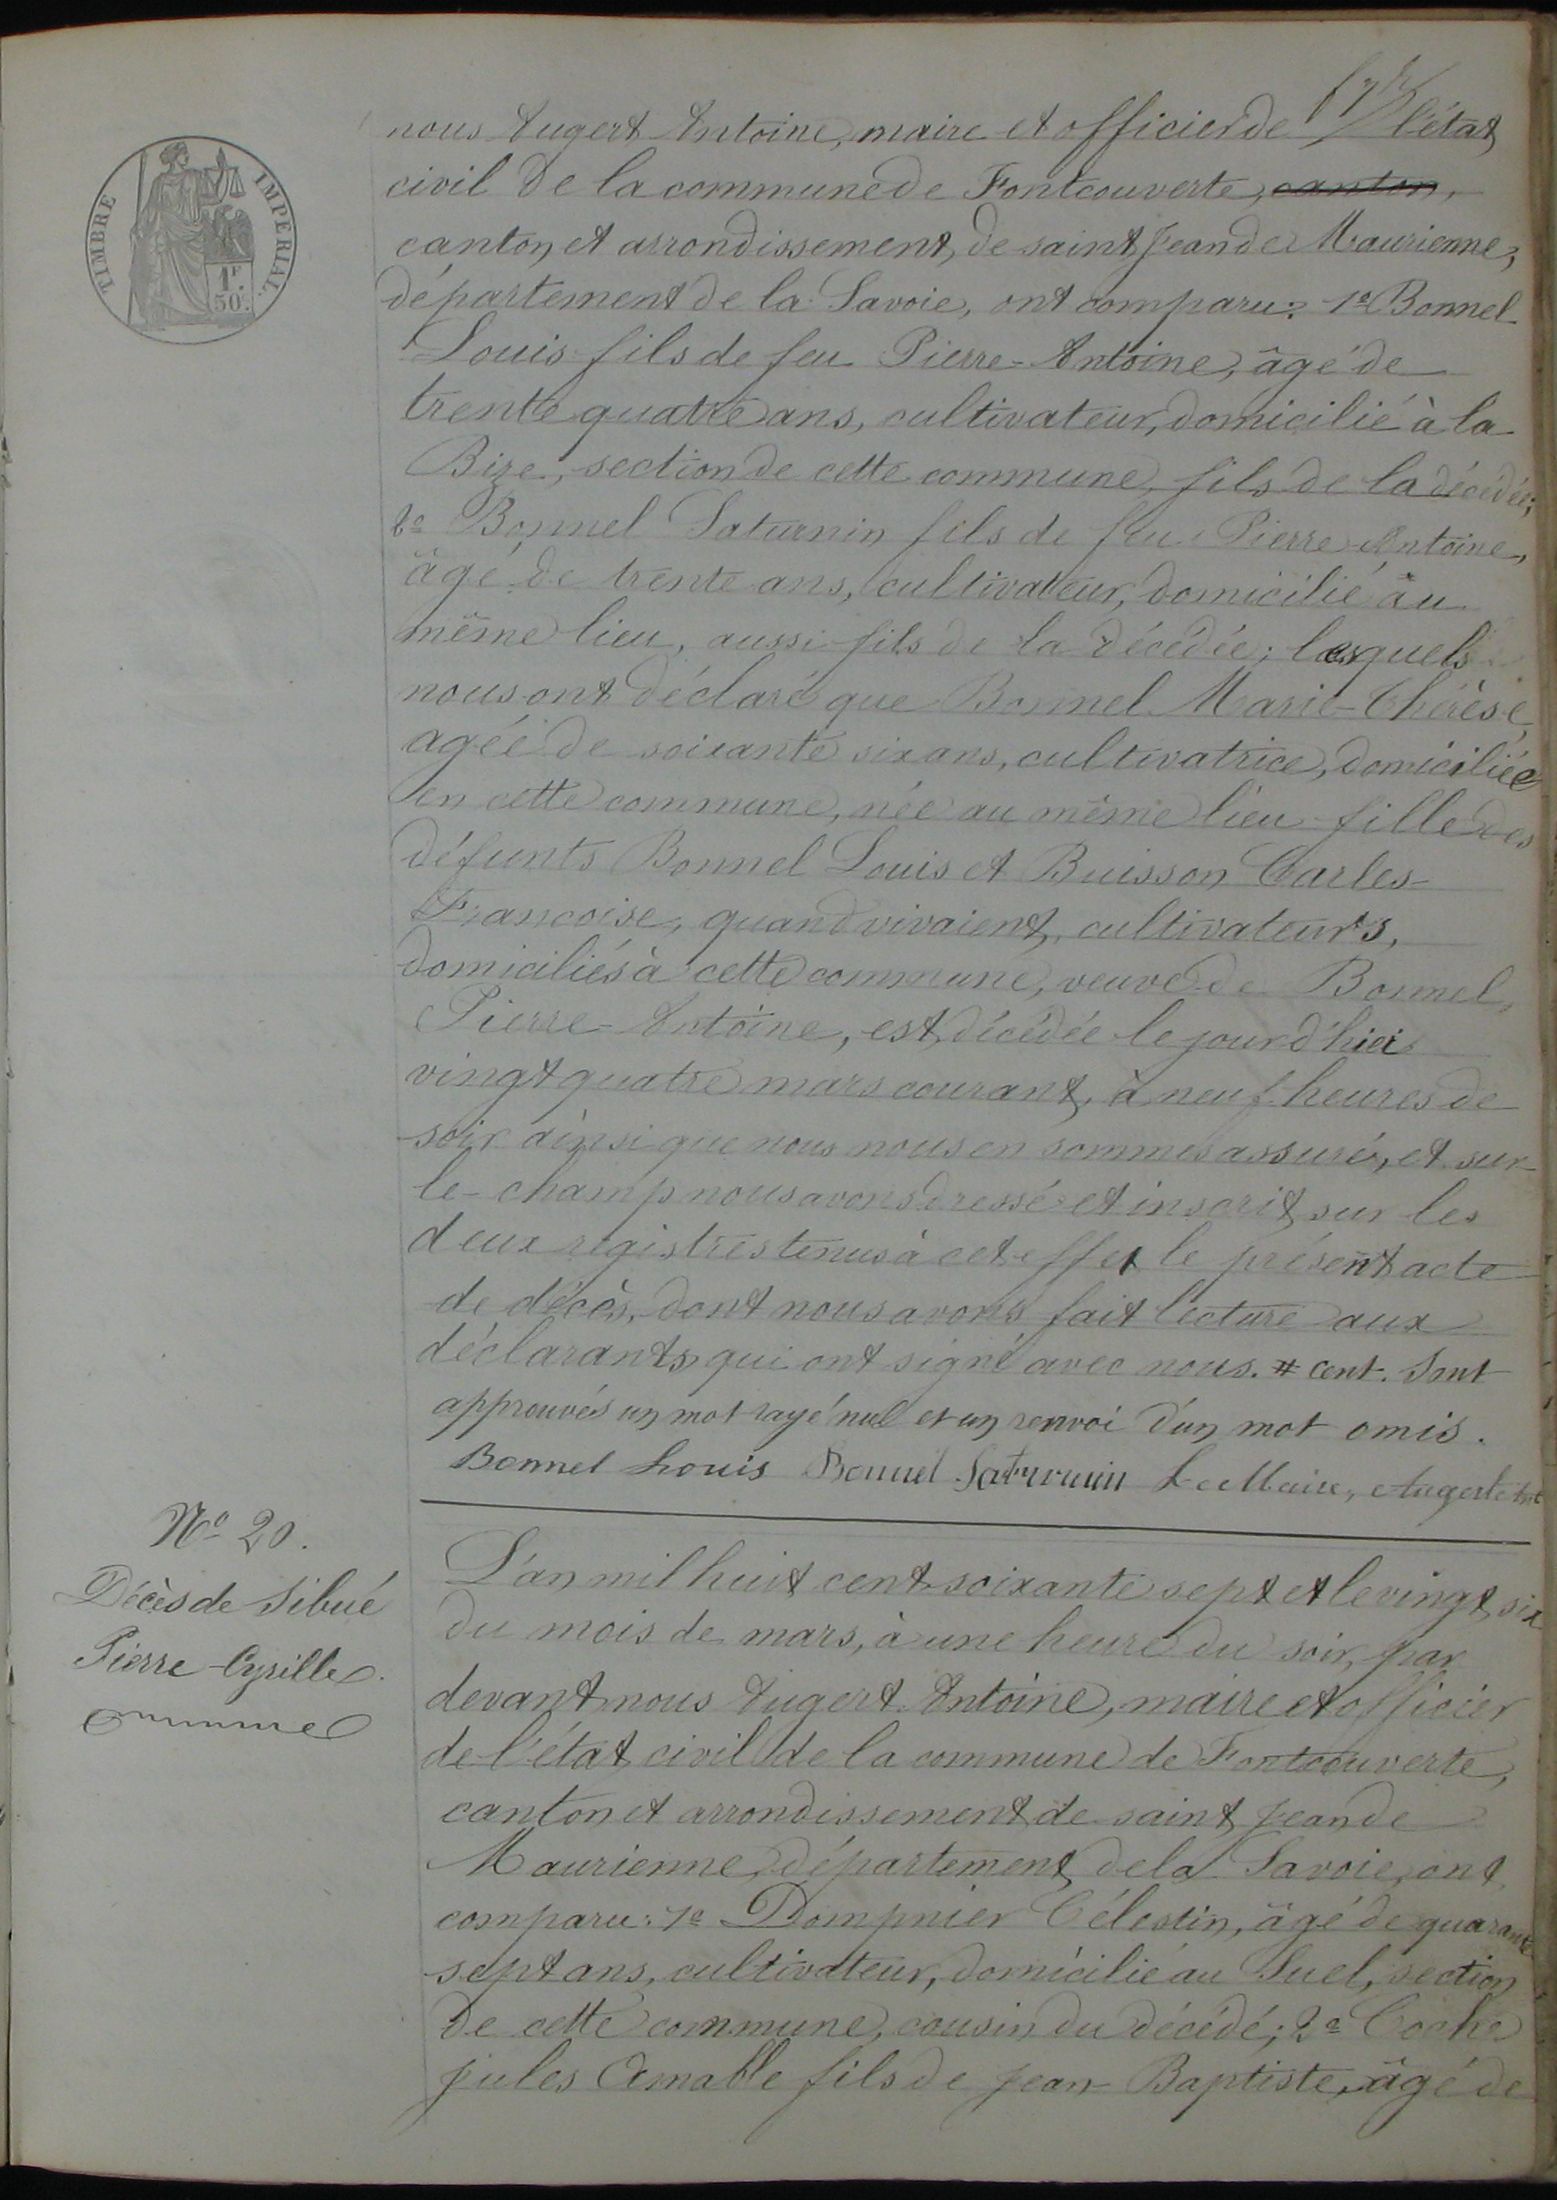 TIMBRE IMPERIAL.
1F
50c.
nous Augert Antoine, maire et officier de l'état
civil de la commune de Fontcouverte, canton,
canton, et arrondissement, de saint Jean de Maurienne,
département de la Savoie, ont comparu: 1º Bonnel
Louis fils de feu Pierre-Antoine, âgé de
trente quatre ans, cultivateur, domicilié à la
Bize, section de cette commune, fils de la décédée;
2º Bonnel Saturnin fils de feu Pierre-Antoine,
âgé de trente ans, cultivateur, domicilié au
même lieu, aussi fils de la décédée; lesquels
nous ont déclaré que Bonnel Marie-Thérèse,
agée de soixante six ans, cultivatrice, domiciliée
en cette commune, née au même lieu fille des
défunts Bonnel Louis et Buisson Carles-
Francoise, quand vivaient, cultivateurs,
domiciliés à cette commune, veuve de Bonnel,
Pierre-Antoine, est décédée le jour d'hier
vingt quatre mars courant, à neuf heures de
soir ainsi que nous nous en sommes assuré, et sur
le-champ nous avons dressé et inscrit sur les
deux registres tenus à cet effet le présent acte
de décès, dont nous avons fait lecture aux
déclarants qui ont signé avec nous. # cent. Sont
approuvés un mot rayé nul et un renvoi d'un mot omis.
Bonnel Louis Bonnel Saturnin Le Maire, Augert Ant
Nº 20.
Décès de Sibué
Pierre Cyrille.
L'an mil huit cent soixante sept et le vingt six
du mois de mars, à une heure du soir, par
devant nous Augert Antoine, maire et officier
de l'état civil de la commune de Fontcouverte,
canton et arrondissement de saint Jean de
Maurienne, département de la Savoie, ont
comparu: 1º Dompnier Célestin, âgé de quarante
sept ans, cultivateur, domicilié au Suel, section
de cette commune, cousin du décédé; 2º Coche
jules Amable fils de Jean-Baptiste, âgé de